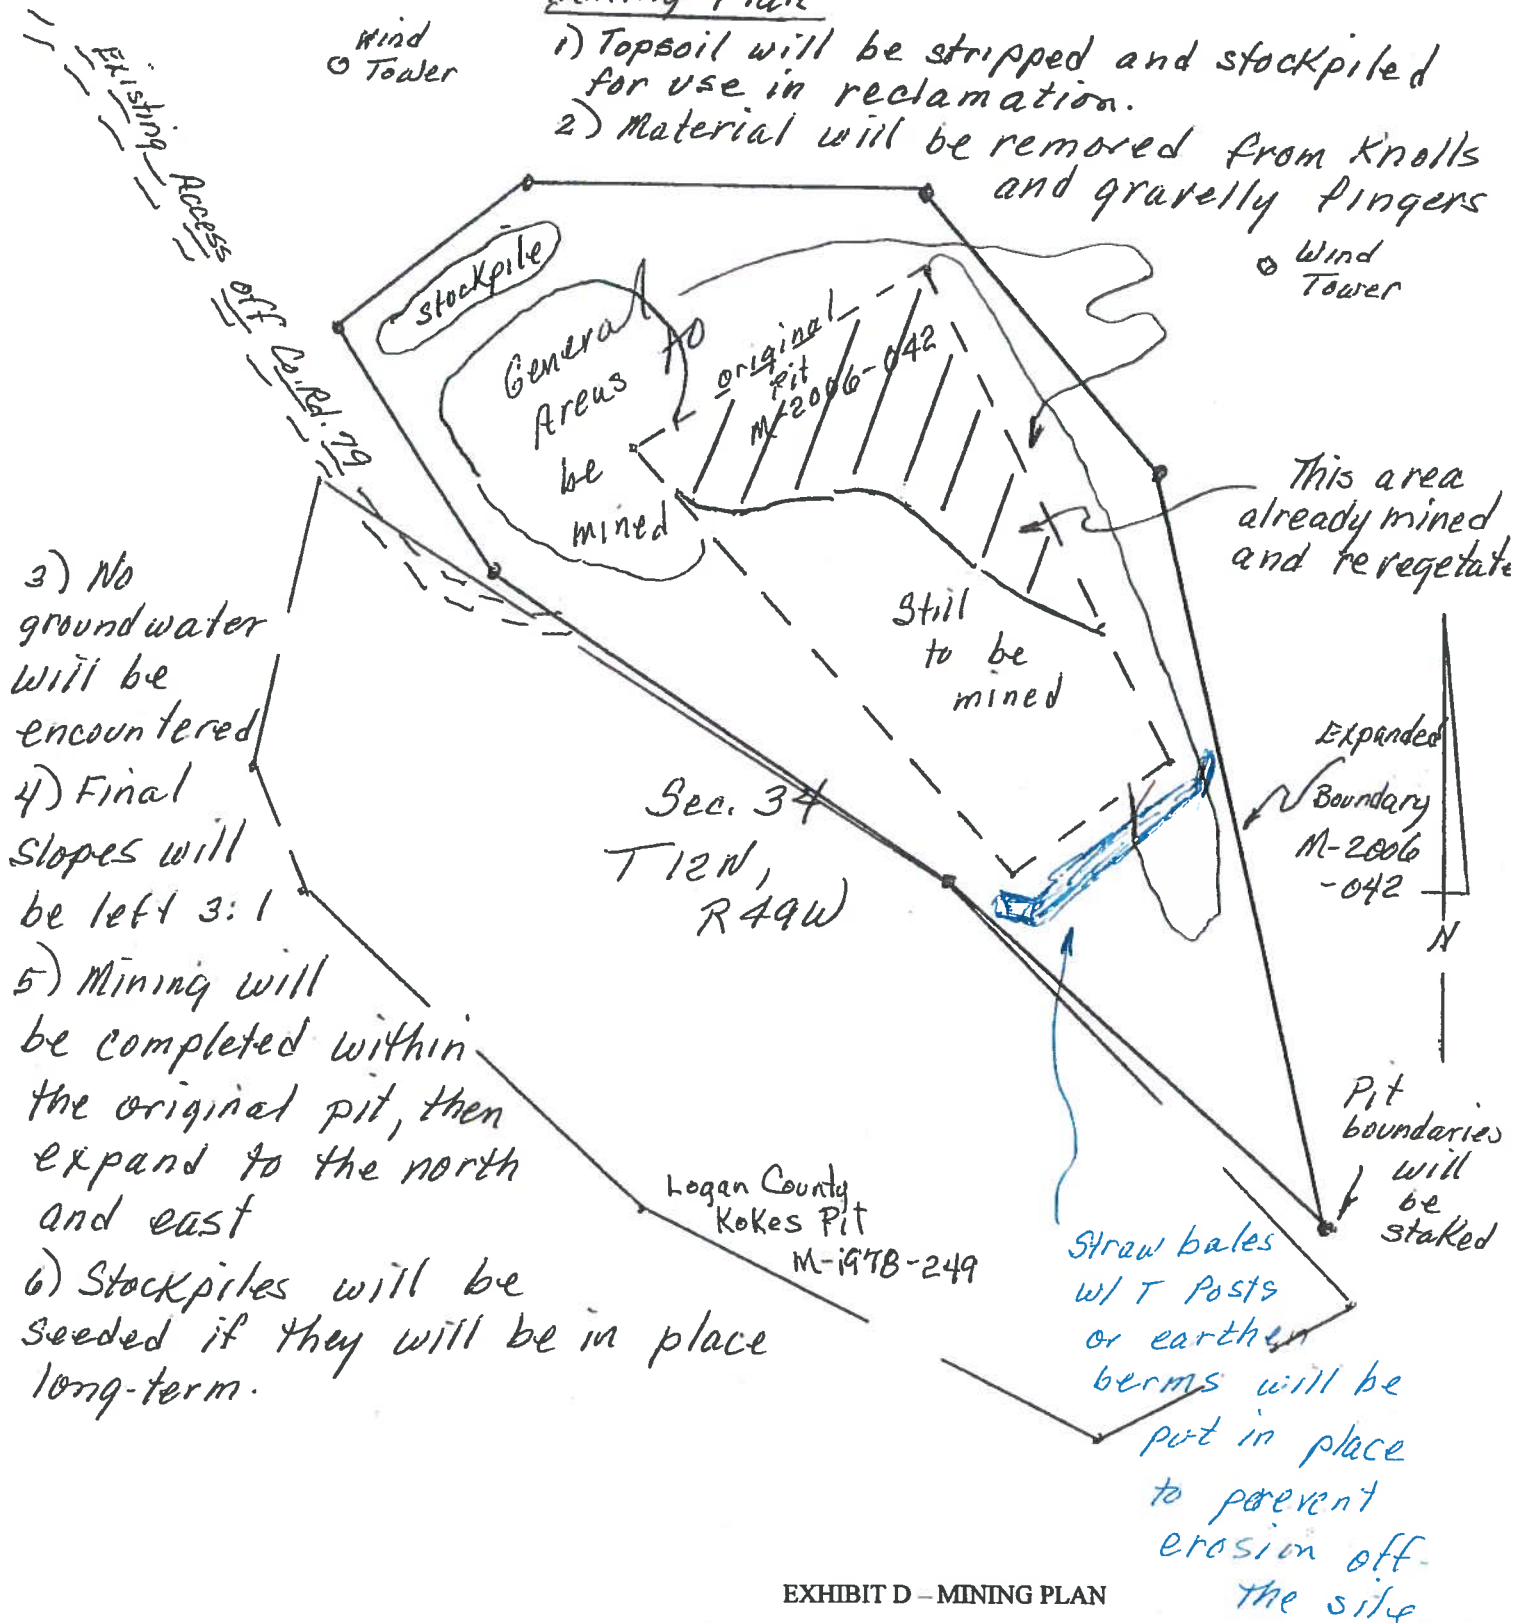 Mining Plan
1) Topsoil will be stripped and stockpiled
for use in reclamation.
2) Material will be removed from Knolls
and gravelly fingers
Wind
Tower
Existing Access off Co. Rd. 79
Wind
Tower
stockpile
General
Areas
to
be
mined
original
Pit
M-2006-042
This area
already mined
and revegetate
Still
to be
mined
3) No
groundwater
will be
encountered
4) Final
slopes will
be left 3:1
5) Mining will
be completed within
the original pit, then
expand to the north
and east
6) Stockpiles will be
seeded if they will be in place
long-term.
Sec. 34
T 12N,
R 49W
Expanded
Boundary
M-2006
-042
N
Pit
boundaries
will
be
staked
Logan County
Kokes Pit
M-1978-249
Straw bales
w/ T Posts
or earthen
berms will be
put in place
to perevent
erosion off
the site
EXHIBIT D – MINING PLAN